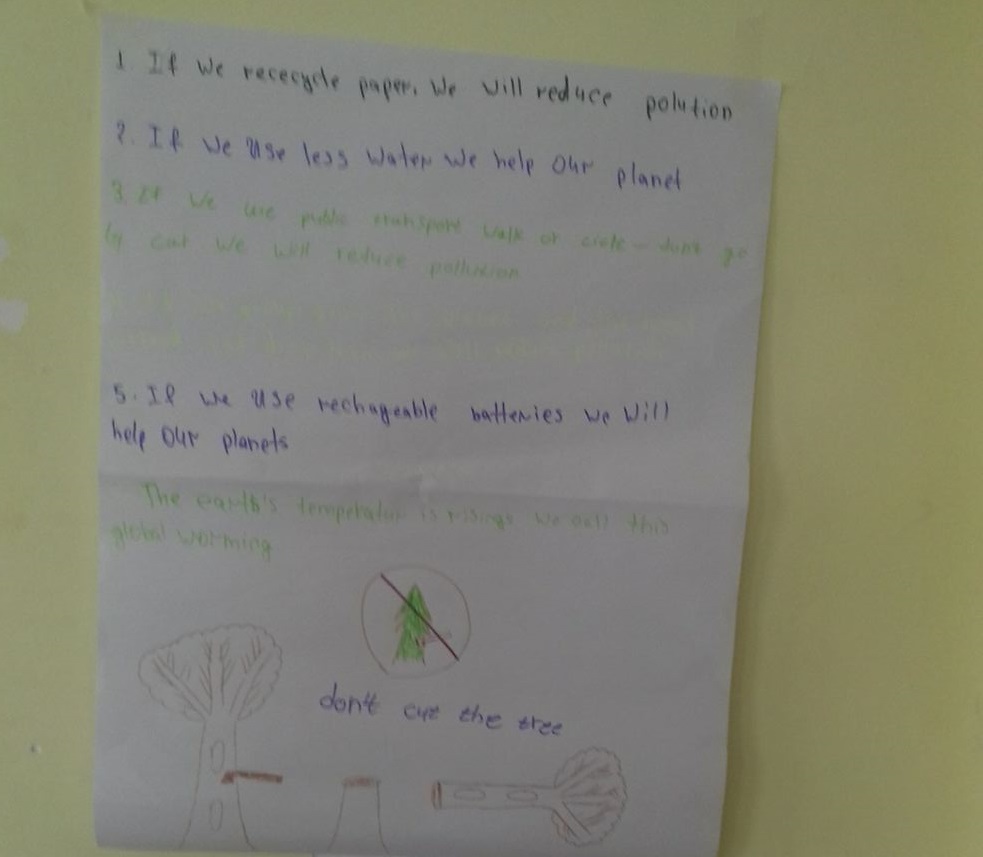 1 If we rececycle paper, we will reduce polution
2. If we use less water we help our planet
3. If we use public transport walk or cicle - dont go
by car we will reduce pollution
5. If we use rechageable batteries we will
help our planets
The earth's temperatur is risings we call this
global worming
don't cut the tree